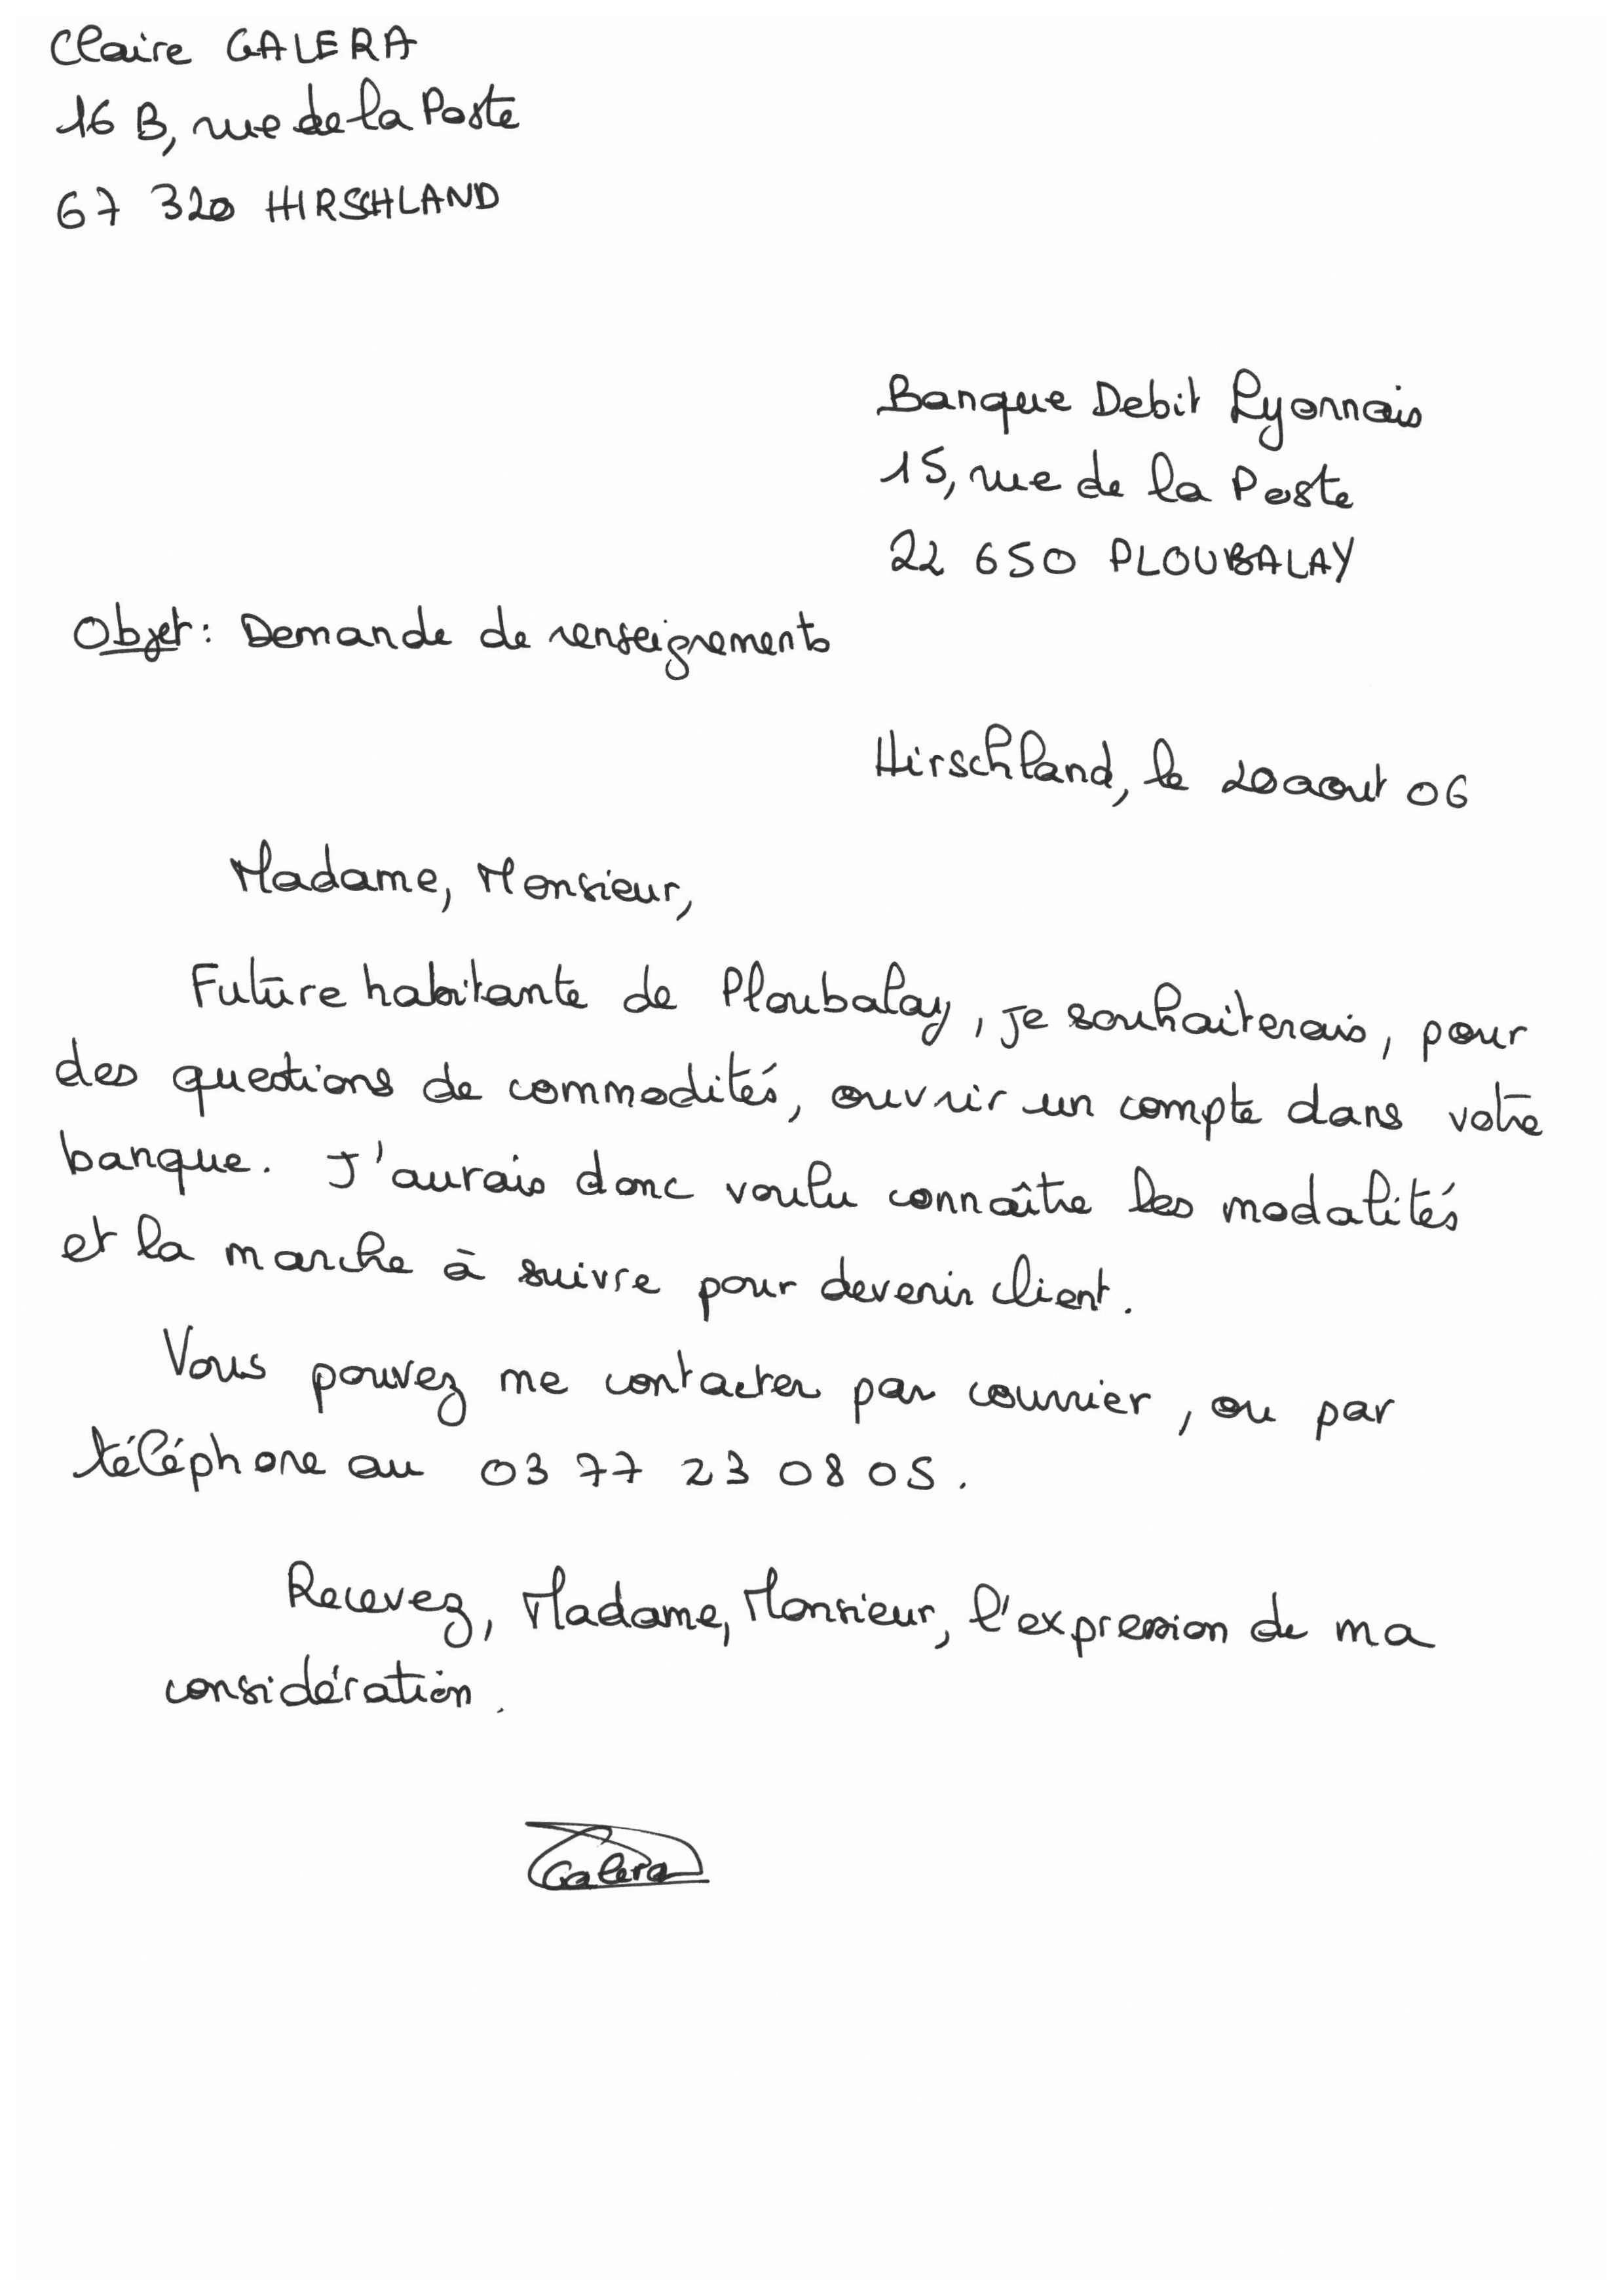 Claire GALERA
16 B, rue de la Poste
67 320 HIRSCHLAND
Banque Debit Lyonnais
15, rue de la Poste
22 650 PLOUBALAY
Objet : Demande de renseignements
Hirschland, le 20 aout 06
Madame, Monsieur,
Future habitante de Ploubalay, je souhaiterais, pour
des questions de commodités, ouvrir un compte dans votre
banque. J'aurais donc voulu connaître les modalités
et la marche à suivre pour devenir client.
Vous pouvez me contacter par courrier, ou par
téléphone au 03 77 23 08 05.
Recevez, Madame, Monsieur, l'expression de ma
considération.
Galera